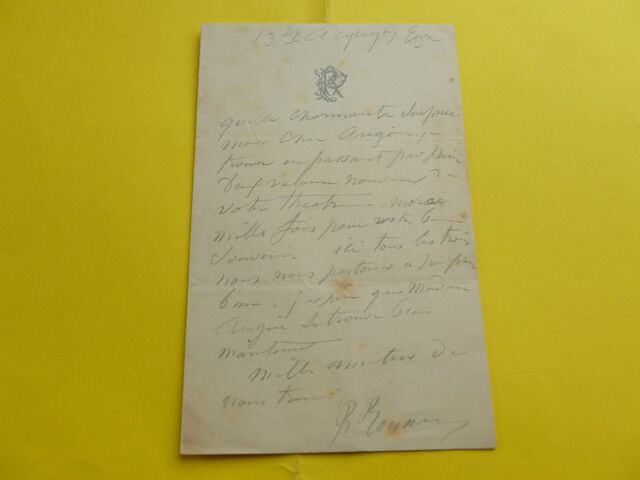 13 7bre
R
quelle charmante surprise
mon cher Augier je
trouve en passant par Paris
deux volumes nouveaux de
votre theatre merci
mille fois pour votre bon
souvenir ici tous les trois
nous nous portons a peu près
bien. j'espère que Madame
Augier se trouve bien
maintenant
mille amitiés de
nous tous
R